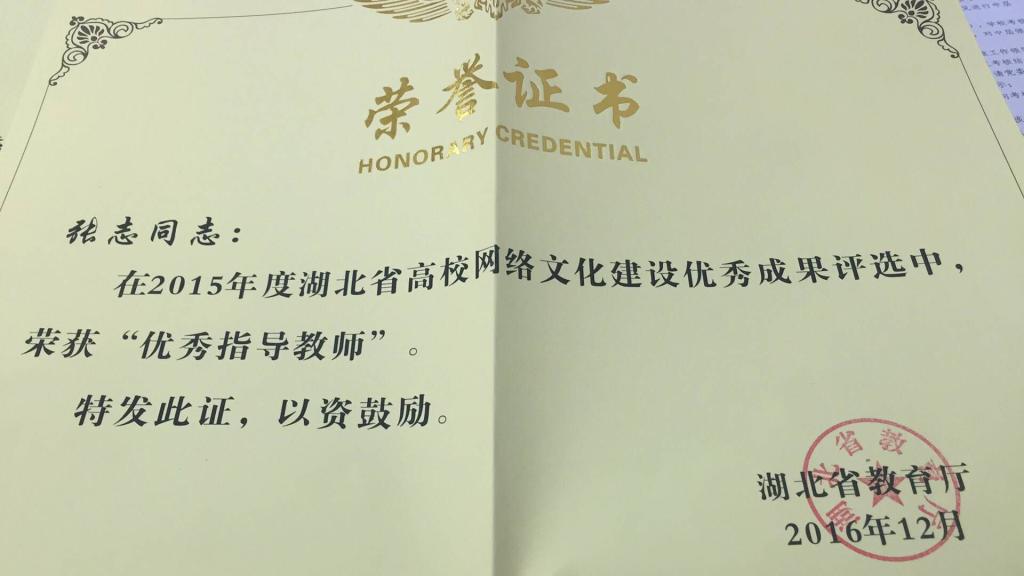 荣誉证书
HONORARY CREDENTIAL
张志同志：
在2015年度湖北省高校网络文化建设优秀成果评选中，
荣获“优秀指导教师”。
特发此证，以资鼓励。
湖北省教育厅
湖北省教育厅
2016年12月